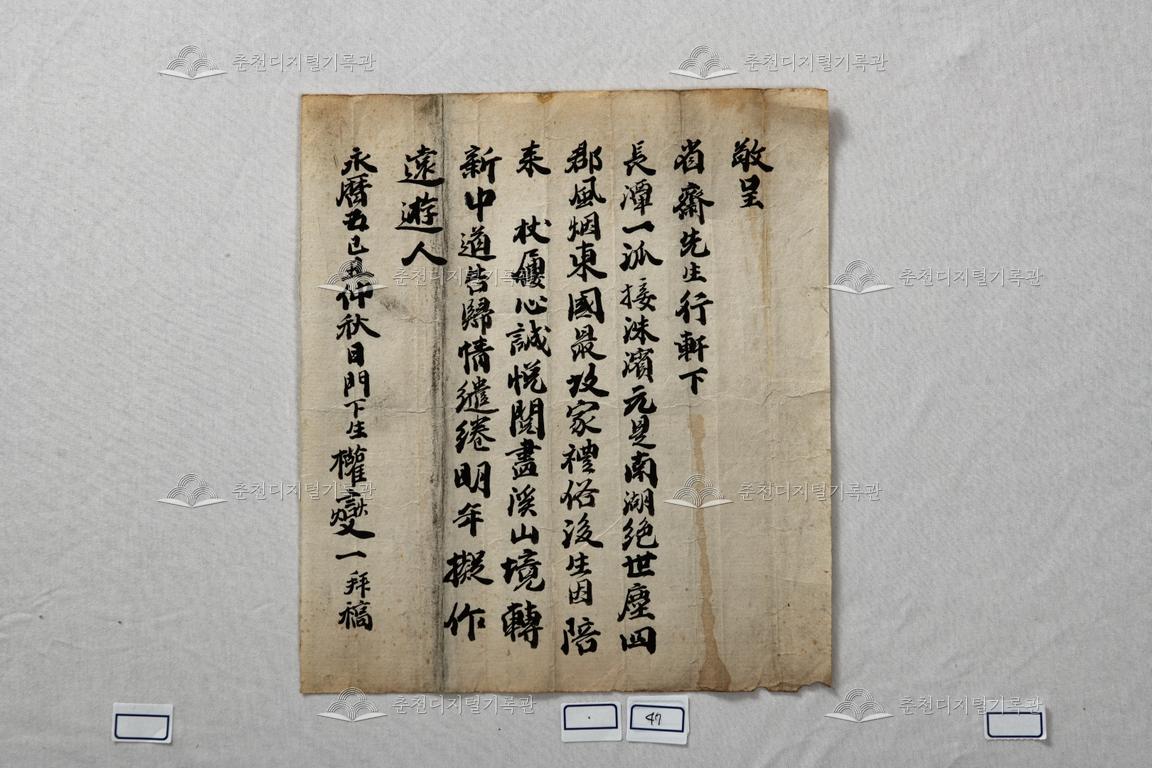 敬呈
省齋先生行軒下
長潭一派接洙濱元是南湖絶世塵四
郡風烟東國最故家禮俗後生因陪
来 杖屨心誠悅閱盡溪山境轉
新中道告歸情繾綣明年擬作
遠遊人
永曆五己丑仲秋日門下生權燮一拜稿
47
춘천디지털기록관
춘천디지털기록관
춘천디지털기록관
춘천디지털기록관
춘천디지털기록관
춘천디지털기록관
춘천디지털기록관
춘천디지털기록관